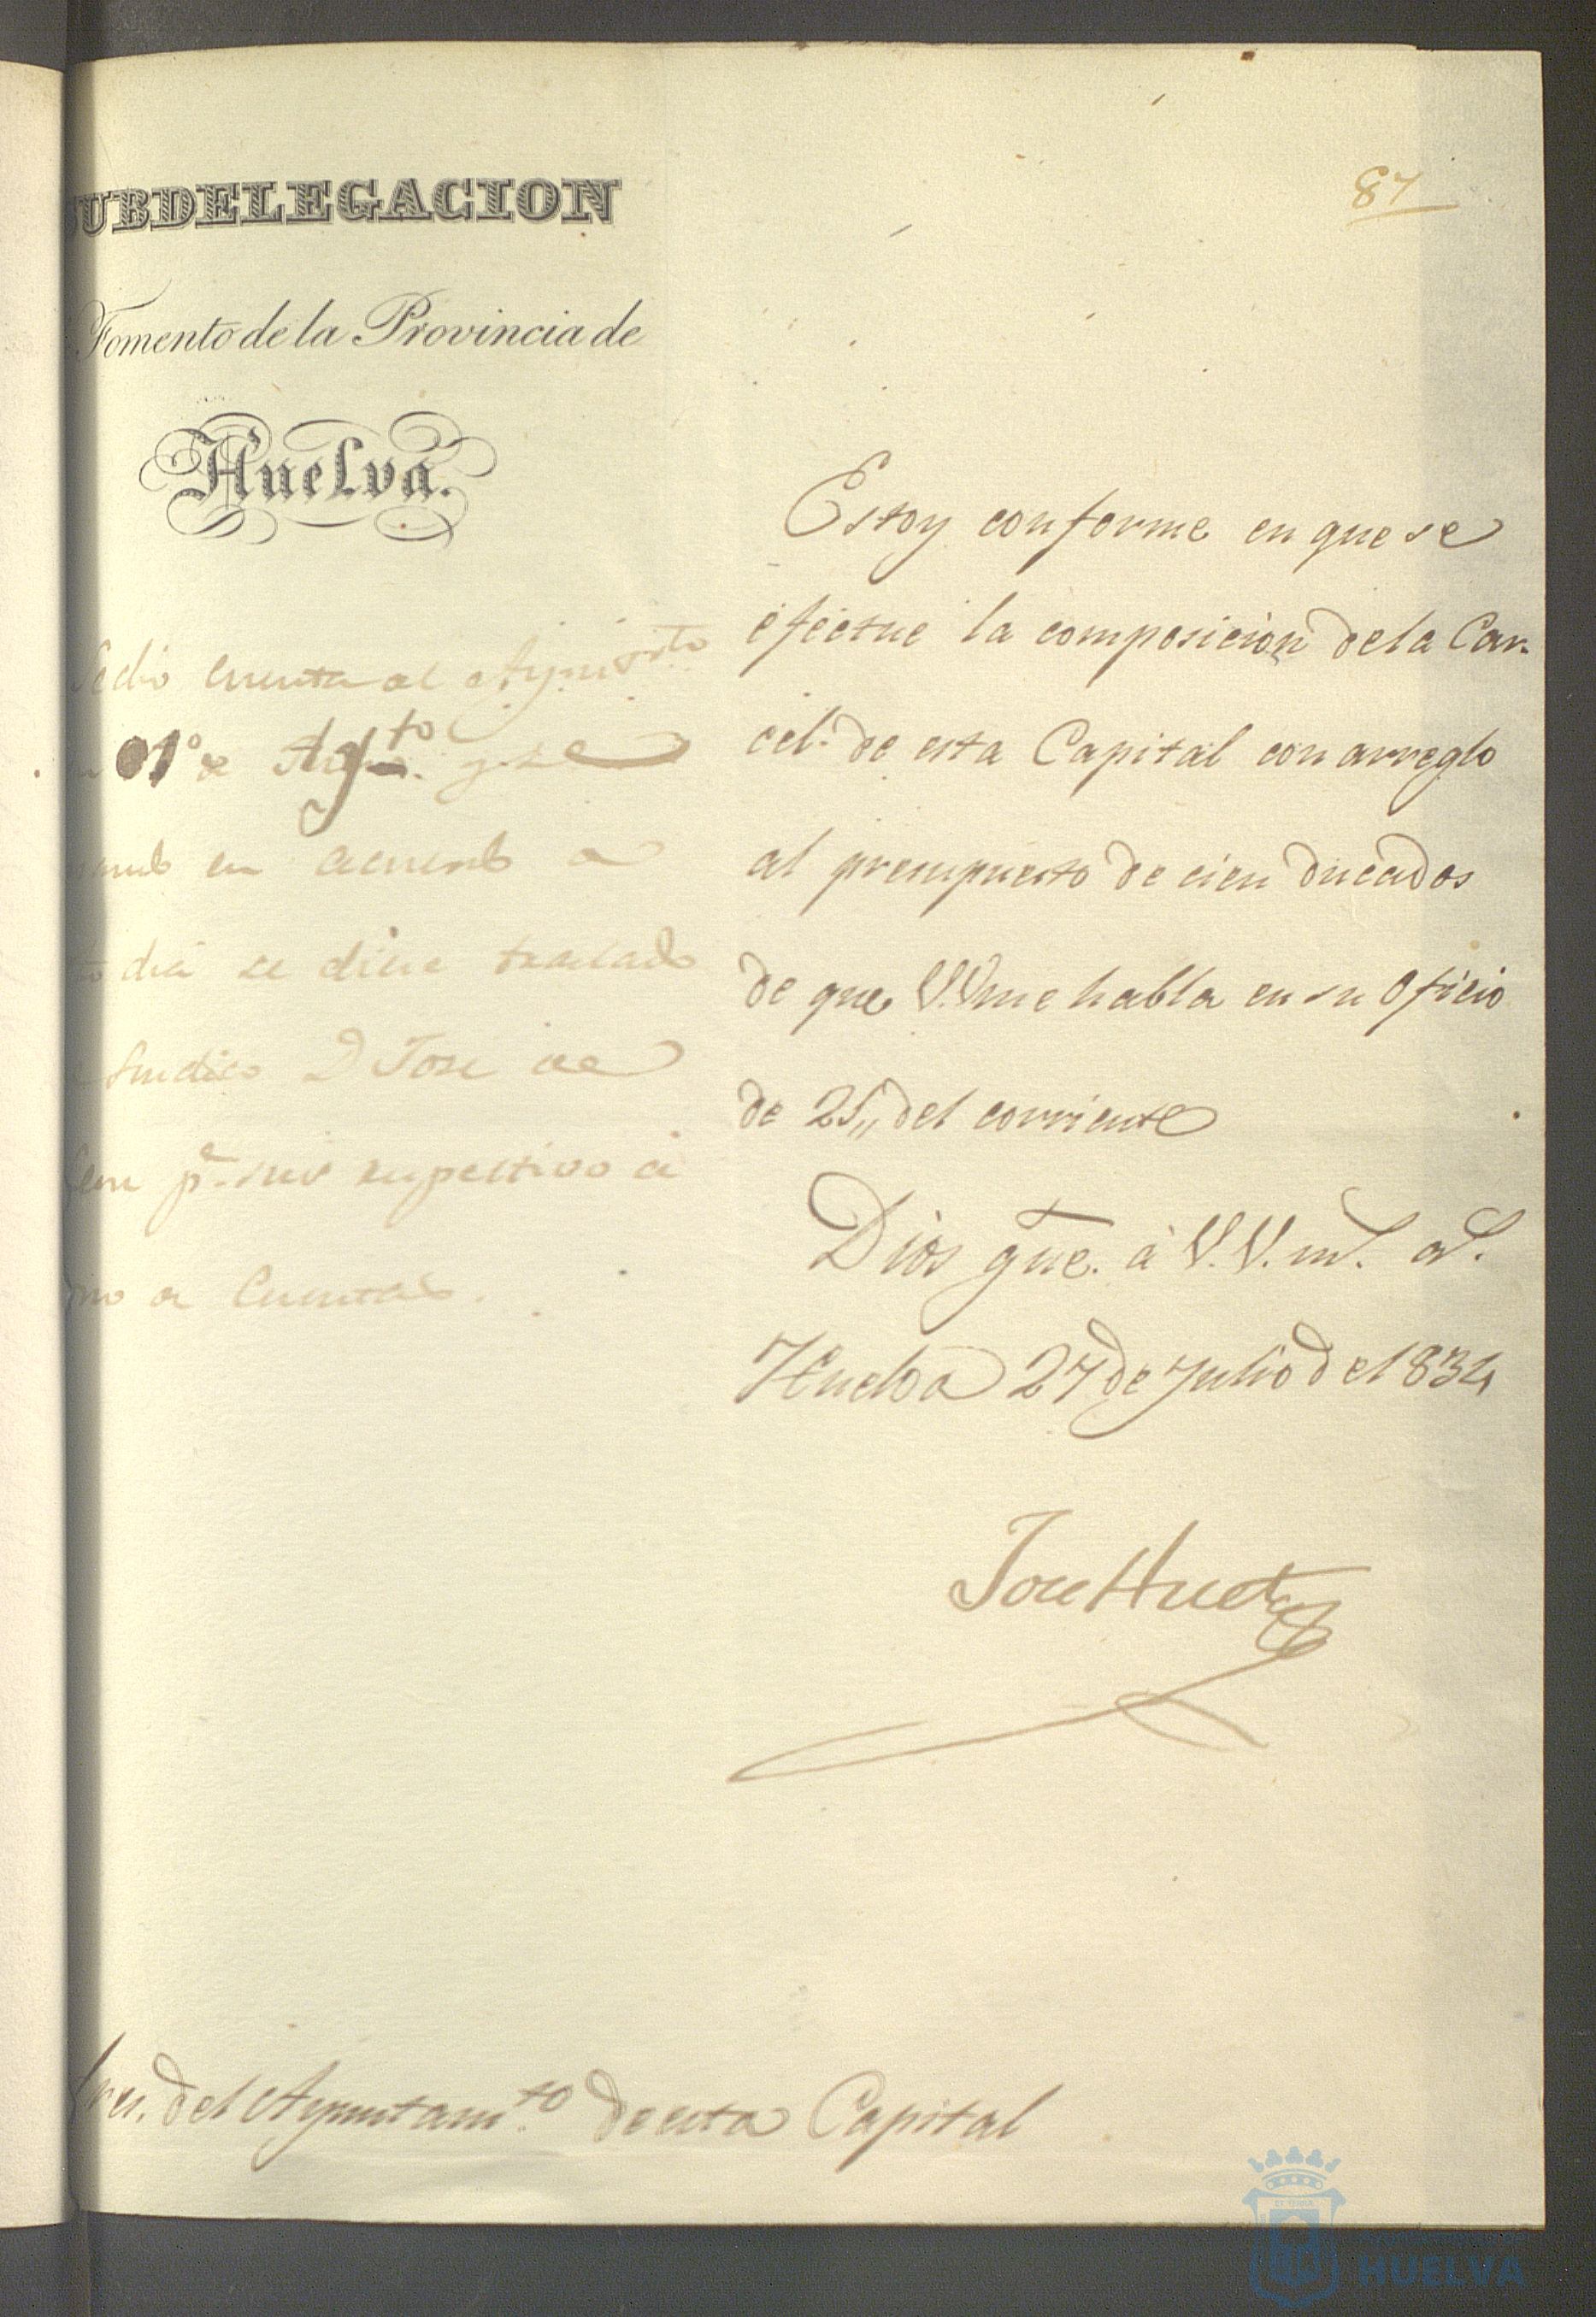 87
UBDELEGACION
Fomento de la Provincia de
Huelva.
Estoy conforme en que se
efectue la composicion de la Car-
cel de esta Capital con arreglo
al presupuesto de cien ducados
de que V.V. me habla en su Oficio
de 25,, del corriente
Dios gue. à V.V. ms. as.
Huelva 27 de Julio de 1834
Jose Huet
edio cuenta al Ayun
1º de Agto. y se
en acuerdo a
dia se diese traslado
Sindico D Jose de
pa. sus respectivo à
a Cuentas.
res. del Ayuntamto. de esta Capital
HUELVA